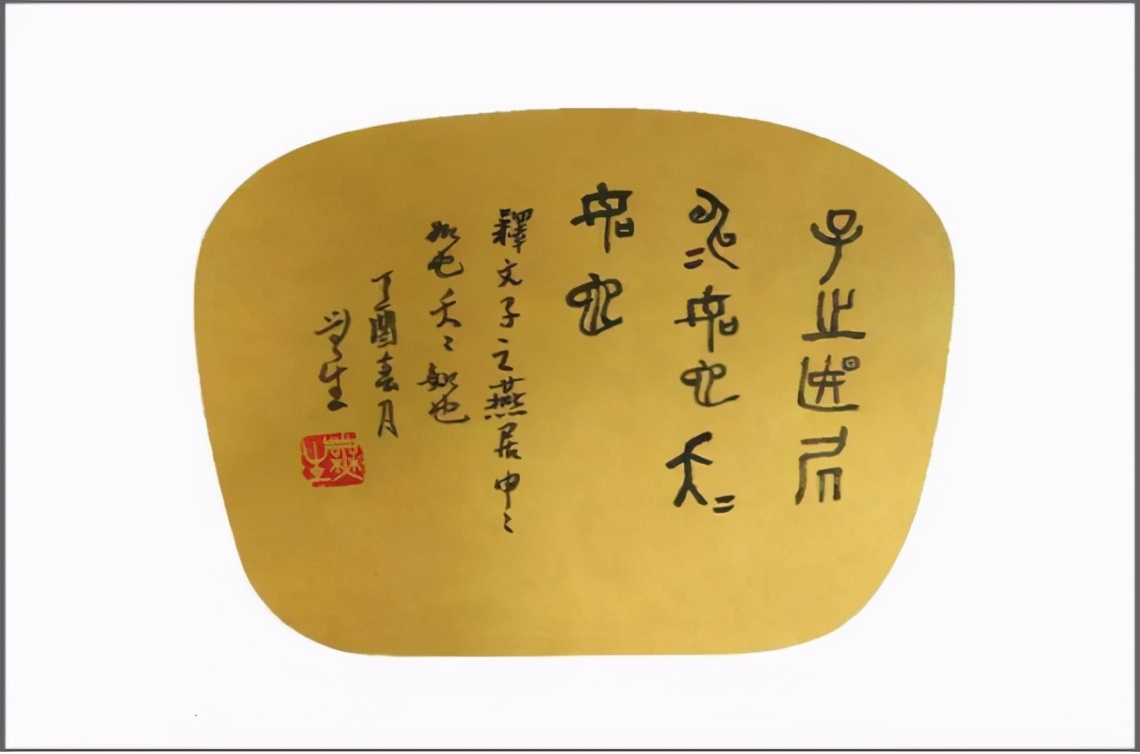 子之燕居
申〻如也夭〻
如也
釋文子之燕居申〻
如也夭〻如也
丁酉春月
生